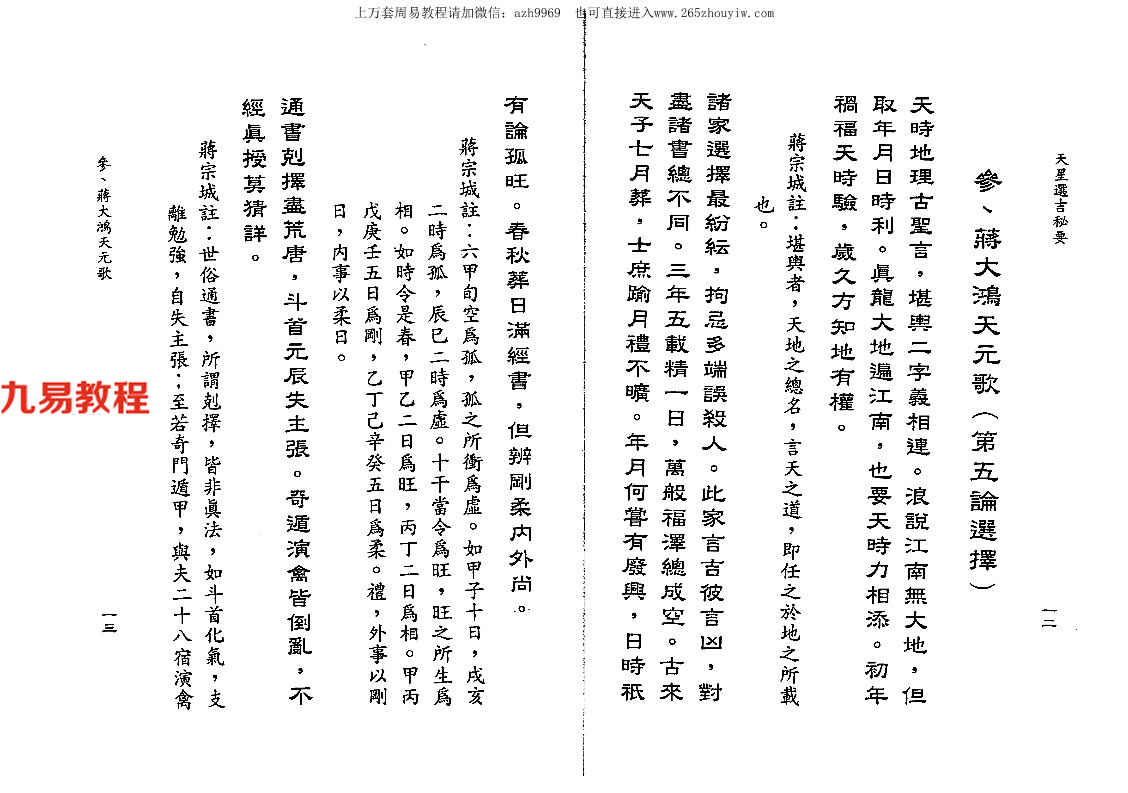 上万套周易教程请加微信：azh9969 也可直接进入www.265zhouyiw.com
天星選吉秘要
參、蔣大鴻天元歌（第五論選擇）
天時地理古聖言，堪輿二字義相連。浪說江南無大地，但
取年月日時利。眞龍大地遍江南，也要天時力相添。初年
禍福天時驗，歲久方知地有權。
蔣宗城註：堪輿者，天地之總名，言天之道，即任之於地之所載
也。
諸家選擇最紛紜，拘忌多端誤殺人。此家言吉彼言凶，對
盡諸書總不同。三年五載精一日，萬般福澤總成空。古來
天子七月葬，士庶踰月禮不曠。年月何嘗有廢興，日時祇
一二
有論孤旺。春秋葬日滿經書，但辨剛柔內外尚。
蔣宗城註：六甲旬空爲孤，孤之所衝爲虛。如甲子十日，戌亥
二時爲孤，辰巳二時爲虛。十干當令爲旺，旺之所生爲
相。如時令是春，甲乙二日爲旺，丙丁二日爲相。甲丙
戊庚壬五日爲剛，乙丁己辛癸五日爲柔。禮，外事以剛
日，内事以柔日。
通書剋擇盡荒唐，斗首元辰失主張。奇遁演禽皆倒亂，不
經眞授莫猜詳。
蔣宗城註：世俗通書，所謂剋擇，皆非眞法，如斗首化氣，支
離勉強，自失主張；至若奇門遁甲，與夫二十八宿演禽
參、蔣大鴻天元歌
一三
九易教程